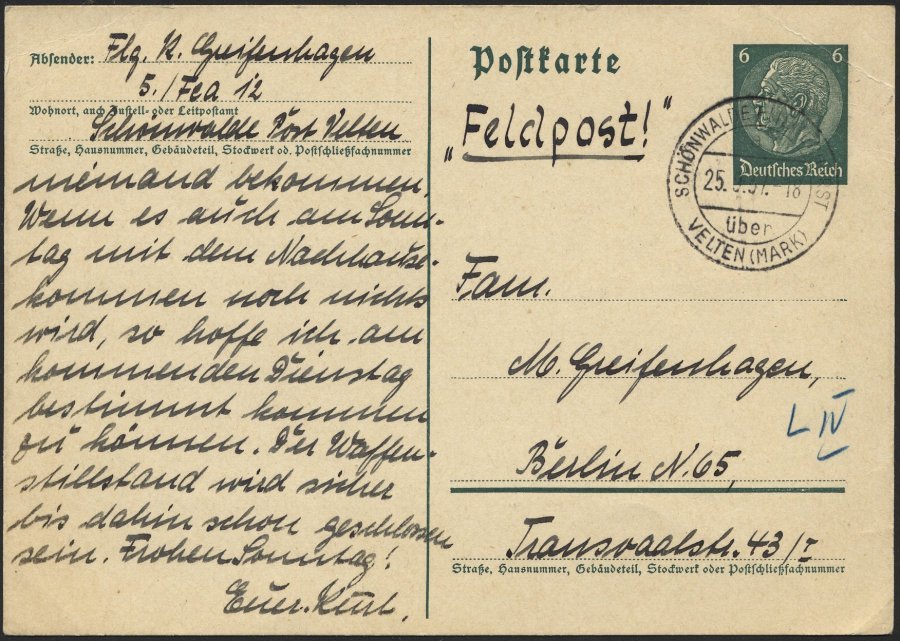 Absender: Flg. K. Greifenhagen
5./Fea 12
Wohnort, auch Zustell- oder Leitpostamt
Schönwalde Post Velten
Straße, Hausnummer, Gebäudeteil, Stockwerk od. Postschließfachnummer
niemand bekommen.
Wenn es auch am Sonn-
tag mit dem Nachhause-
kommen noch nichts
wird, so hoffe ich am
kommenden Dienstag
bestimmt kommen
zu können. Der Waffen-
stillstand wird sicher
bis dahin schon geschlossen
sein. Frohen Sonntag!
Euer Kurt.
Postkarte
6 6
Deutsches Reich
SCHÖNWALDE
25. 37.-18
über
VELTEN (MARK)
„Feldpost!"
Fam.
M. Greifenhagen,
L IV
Berlin N. 65,
Transvaalstr. 43/I
Straße, Hausnummer, Gebäudeteil, Stockwerk oder Postschließfachnummer